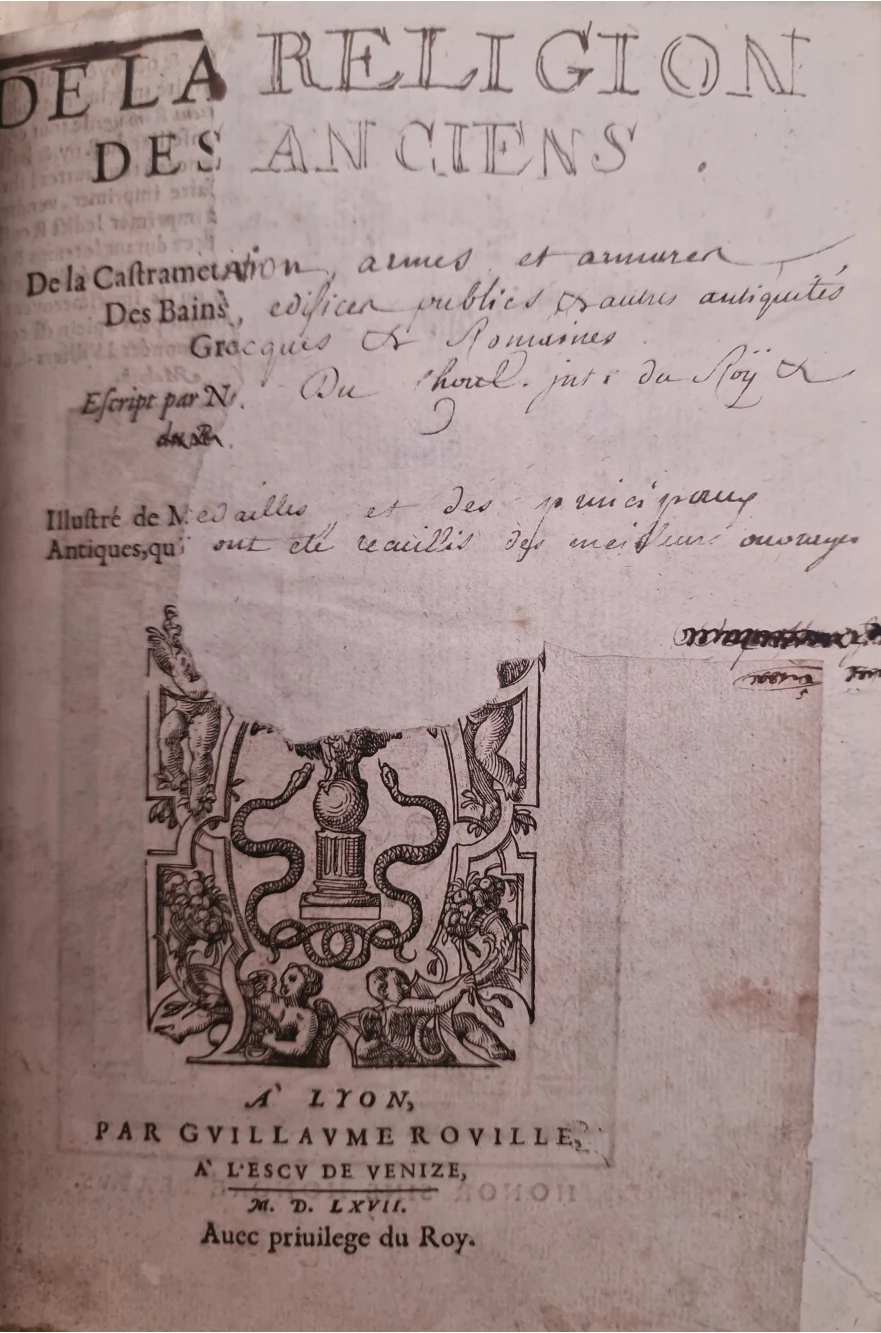 DE LA RELIGION
DES ANCIENS.
De la Caſtrametation, armes et armures,
Des Bains, edifices publics & autres antiquités
Grecques & Romaines
Eſcript par N. Du Choul. du Roÿ &
Illuſtré de Medailles et des principaux
Antiques, qui ont eté recuillis des meilleurs ouvrages
A' LYON,
PAR GVILLAVME ROVILLE,
A' L'ESCV DE VENIZE,
M. D. LXVII.
Auec priuilege du Roy.